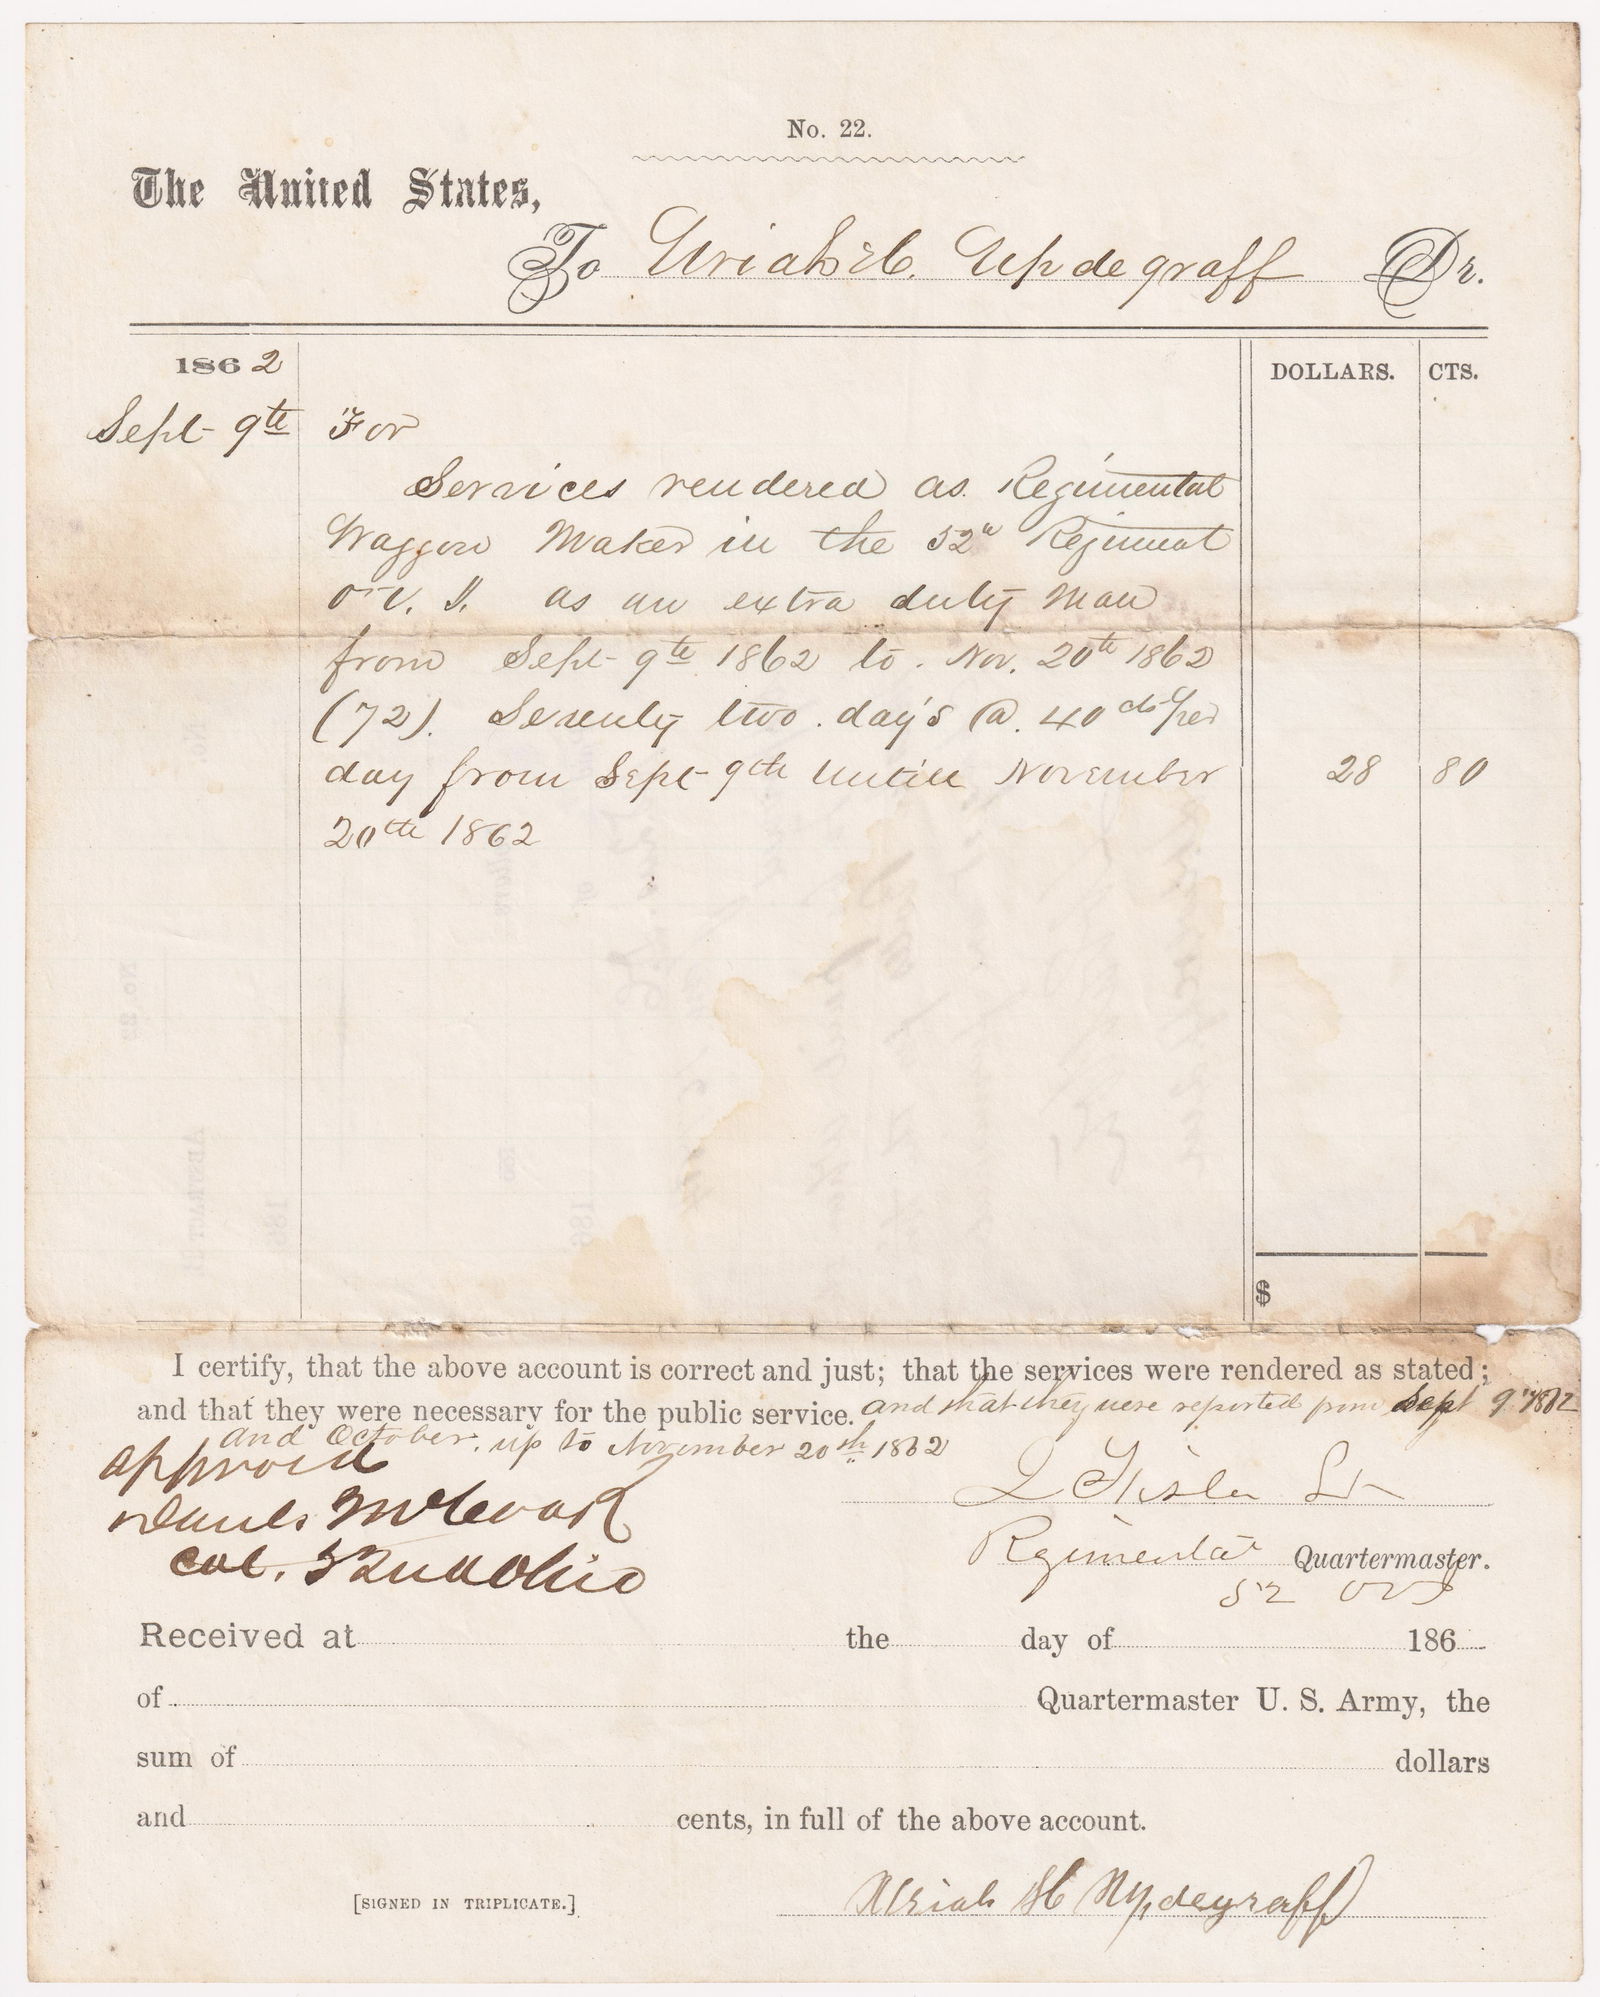 No. 22.
The United States,
To Uriah H. Updegraff Dr.
1862 DOLLARS. CTS.
Sept 9th For
Services rendered as Regimental
Waggon Maker in the 52d Regiment
O. V. I. as an extra duty man
from Sept 9th 1862 to. Nov. 20th 1862
(72). Seventy two day's @ 40 cts per
day from Sept 9th untill November 28 80
20th 1862
$
I certify, that the above account is correct and just; that the services were rendered as stated;
and that they were necessary for the public service. and that they were reported from Sept 9th 1862
and October, up to November 20th 1862
approved
Daniel McCook
Col. 52nd Ohio
Regimental Quartermaster.
52 OVI
Received at the day of 186
of Quartermaster U. S. Army, the
sum of dollars
and cents, in full of the above account.
[SIGNED IN TRIPLICATE.] Uriah H Updegraff